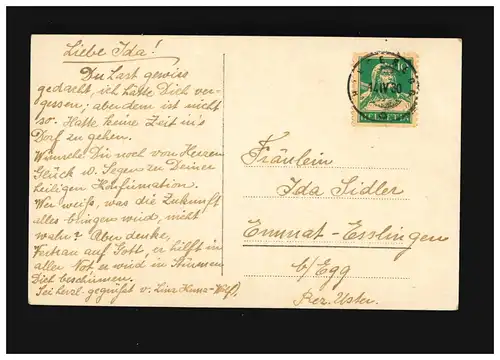 Liebe Ida!
Du hast gewiss
gedacht, ich hätte Dich ver-
gessen; aber dem ist nicht
so. Hatte keine Zeit in's
Dorf zu gehen.
Wünsche Dir noch von Herzen
Glück u. Segen zu Deiner
heiligen Konfirmation.
Wer weiß, was die Zukunft
alles bringen wird, nicht
wahr? Aber denke,
Vertrau auf Gott, er hilft in
aller Not er wird in Stürmen
Dich beschirmen.
Sei herzl. gegrüßt v. Lina
HELVETIA
Fräulein
Ida Sidler
Emmat-Esslingen
b/Egg
Bez. Uster.